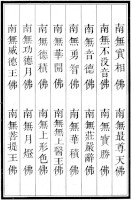 南無實相佛　南無最尊天佛
南無不沒音佛　南無寶勝佛
南無音德佛　南無莊嚴辭佛
南無勇智佛　南無華積佛
南無華開佛　南無上醫王佛
南無德積佛　南無上形色佛
南無功德月佛　南無月燈佛
南無威德王佛　南無菩提王佛